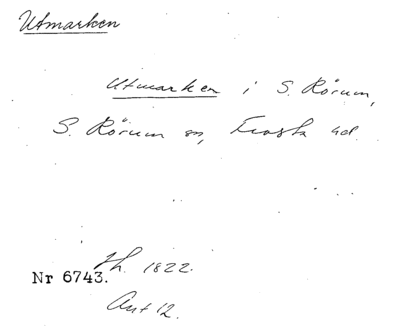 Utmarken
Utmarken i S. Rörum,
S. Rörum sn, Frosta hd.
Lh. 1822.
Nr 6743.
Ant 12.